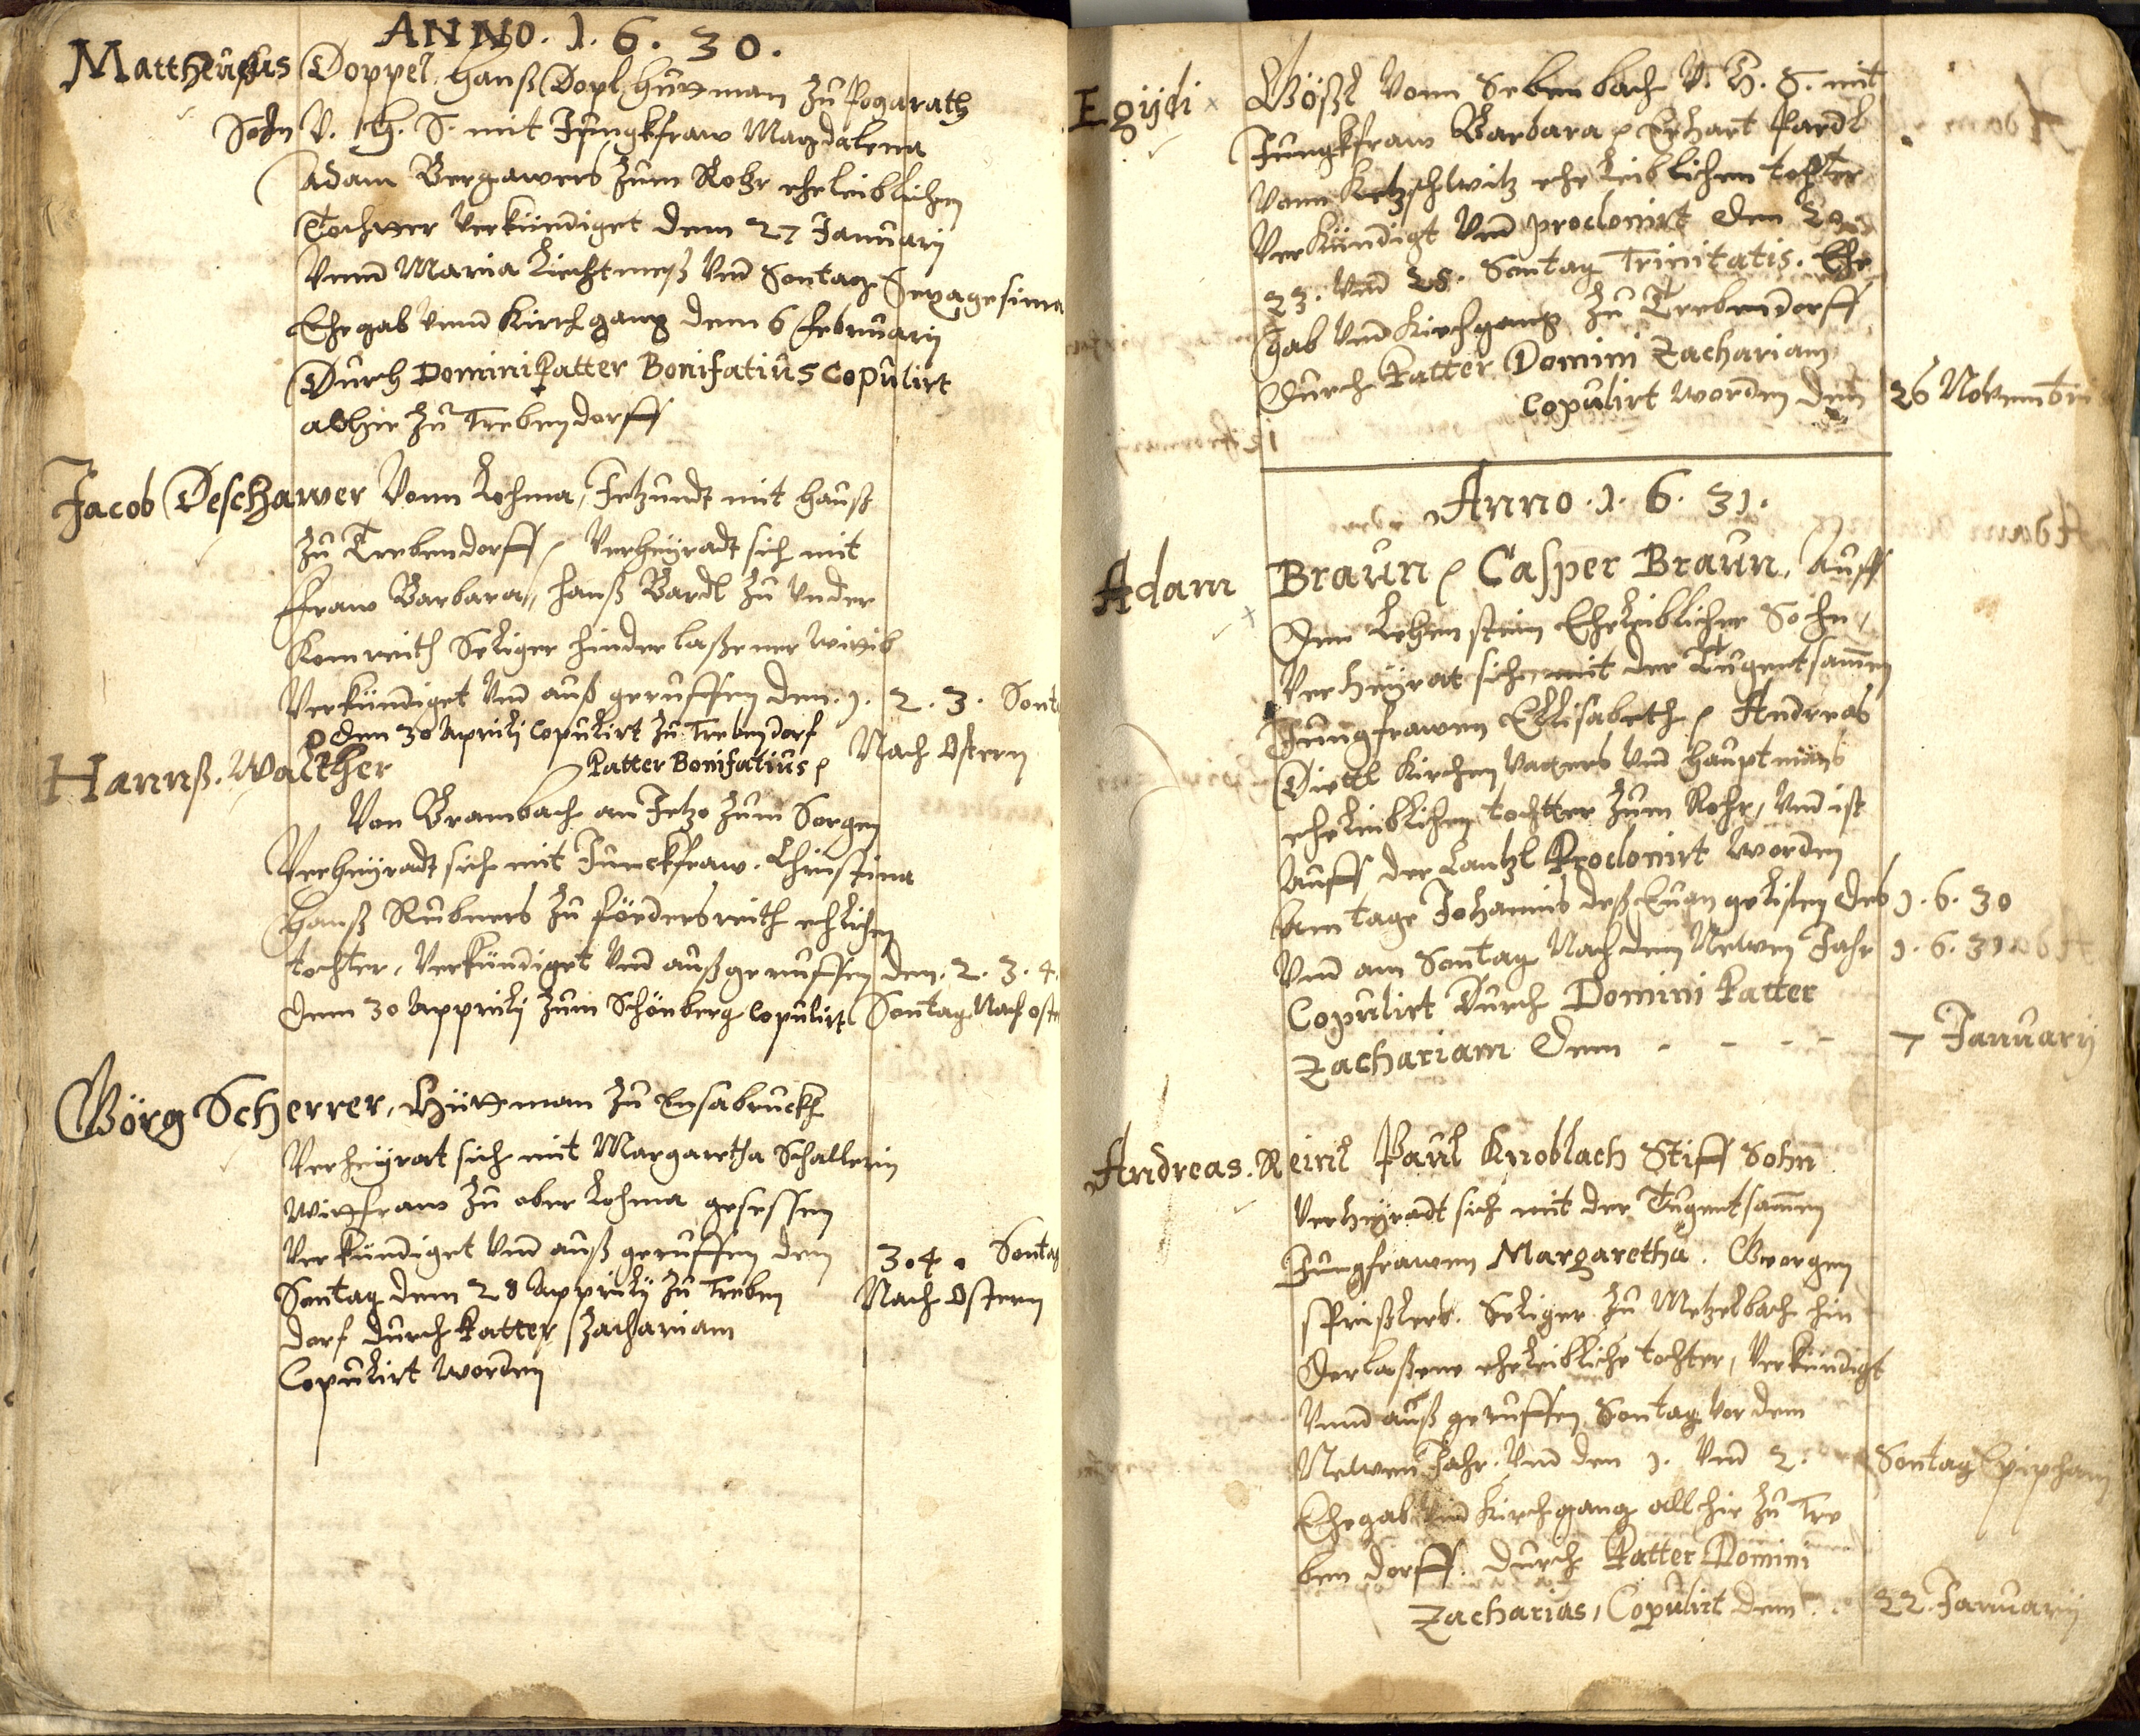 ANNO. 1. 6. 30.
Mattheuhus Doppel, Hanß Dopl Hüttman zu Pogarath
Sohn V. H. S. mit Jungkfraw Magdalena
Adam Bergawers zum Rohr eheleiblichen
Tochtter Verkündiget dem 27 Januarij
Vnnd Maria Liechtmeß Vnd Sontag Sexagesima
Ehegab vnnd Kirchgang dem 6 Februarij
Durch Domini Patter Bonifatius Copulirt
allhie zu Trebendorff
Jacob Deschawer Vonn Lohma, Jetzundt mit hauß
zu Trebendorff, Verheyradt sich mit
Fraw Barbara, Hanß Bardl zu Vnder
Konreith Seliger hinderlaßener Wittib
Verkündiget Vnd auß geruffen den. 1. 2. 3. Sont
Nach Ostern
den 30 Aprilij Copulirt zu Trebendorf
Patter Bonifatius
Hannß. Walther
Von Brambach an Jetzo zum Sorgen
Verheyradt sich mit Junckfraw. Christina
Hanß Rubners zu Fördersreith ehlichen
tochter, Verkündiget Vnd außgeruffen den. 2. 3. 4.
dem 30 Apprilij zum Schönberg Copulirt Sontag Nach oste
Görg Scherrer, Hüttman zu Ensabruckh
Verheyrat sich mit Margaretha Schallerin
Wittfraw zu ober Lohma gesessen
Verkündiget Vnd auß geruffen dem 3. 4. Sontag
Nach Ostern
Sontag dem 28 Apprilij zu Treben
dorf durch Patter Zachariam
Copulirt Worden
Egijdi Gößl Vonn Sebenbach V. H. S. mit
Jungkfraw Barbara Erhart Pardl
Vonn Ketzschlwitz ehe leiblichen tochtter
Verkündigt Vnd proclomirt den
23. Vnd 25. Sontag Trinitatis. Ehe
gab Vnd Kirchgang zu Trebendorff
Durch Patter Domini Zachariam
Copulirt Worden den 26 Novembri
Anno. 1. 6. 31.
Adam Braun, Casper Braun, Auff
Dem Lehenstein Eheleiblicher Sohn,
Verheyrat sich mit der Tugentsamen
Jungfrawen Ellisabeth, Andreas
Dietl Kirchen Vatters Vnd Hauptmans
eheleiblichen tochtter zum Rohr, Vnd ist
Auff der Cantzl Proclomirt Worden
Am tage Johannis deß Euangelisten des 1. 6. 30
Vnd am Sontag Nach dem Newen Jahr 1. 6. 31
Copulirt Durch Domini Patter
Zachariam dem - - - - 7 Januarij
Andreas. Reinl Paul Knoblach Stiff Sohn
Verheyradt sich mit der Tugentsamen
Jungfrawen Margaretha. Georgen
Seliger zu Metzelbach hin
derlaßene eheleibliche tochter, Verkündigt
Vnnd auß geruffen Sontag vor dem
Newen Jahr. Vnd den 1. Vnd 2. Sontag Epiphany
Ehegab Vnd Kirchgang allhie zu Tre
ben dorff. Durch Patter Domini
Zacharias, Copulirt dem 22 Januarij